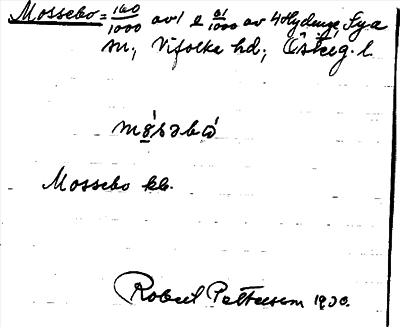 Mossebo = 160/1000 av 1 & 61/1000 av 4 Hydinge, Fya
sn, Vifolka hd, Österg. l.
mósəbò
Mossebo kb.
Robert Pettersson 1930.